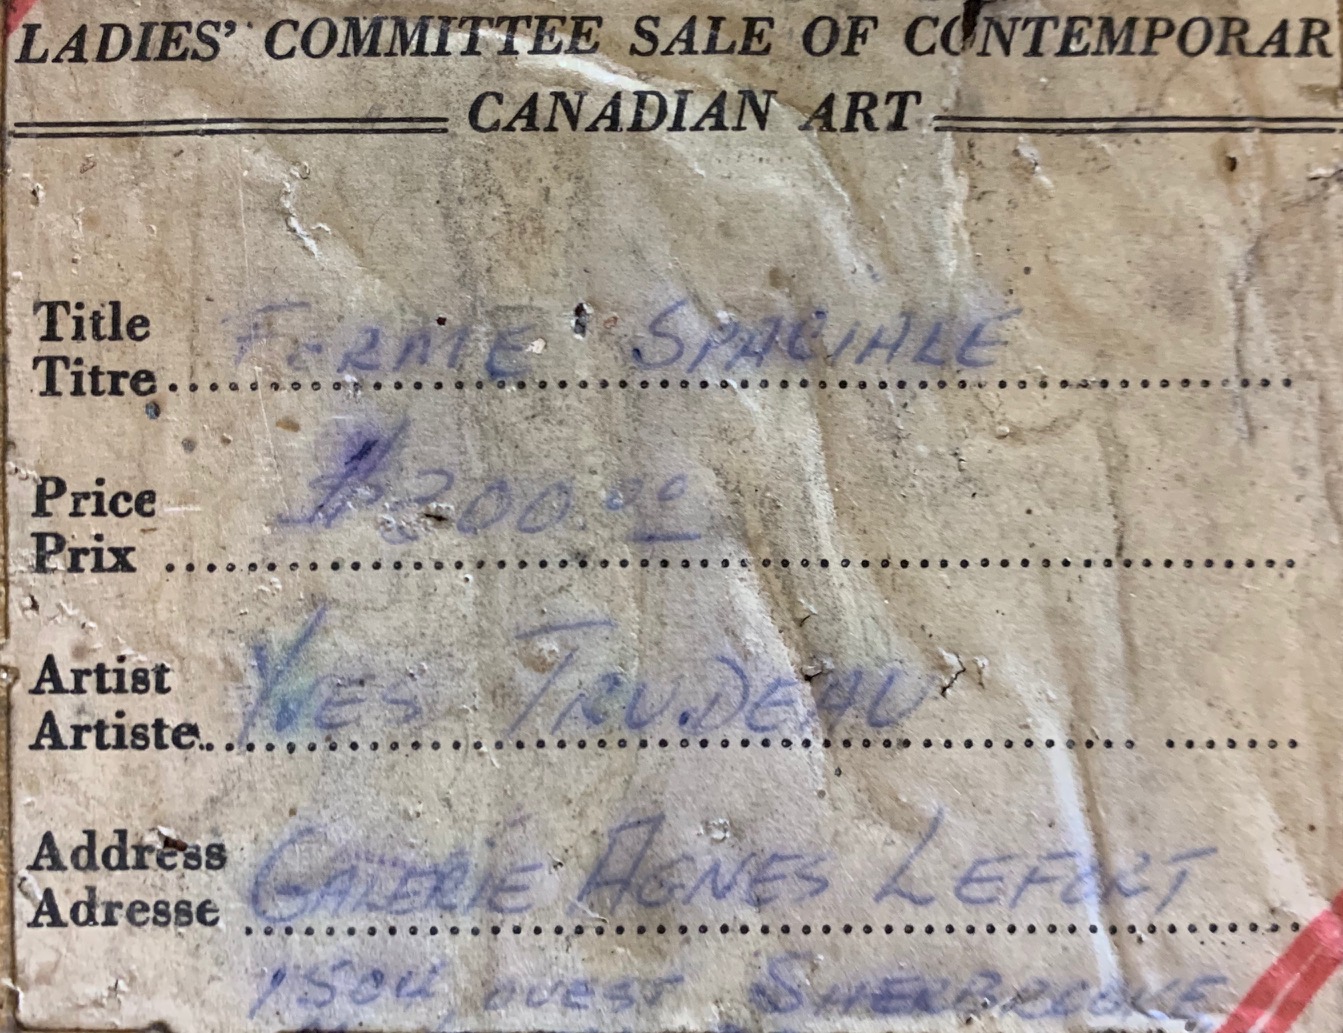 LADIES' COMMITTEE SALE OF CONTEMPORAR
CANADIAN ART
Title FERME SPACIALE
Titre
Price $200.00
Prix
Artist YVES TRUDEAU
Artiste
Address GALERIE AGNES LEFORT
Adresse
1504 OUEST SHERBROOKE